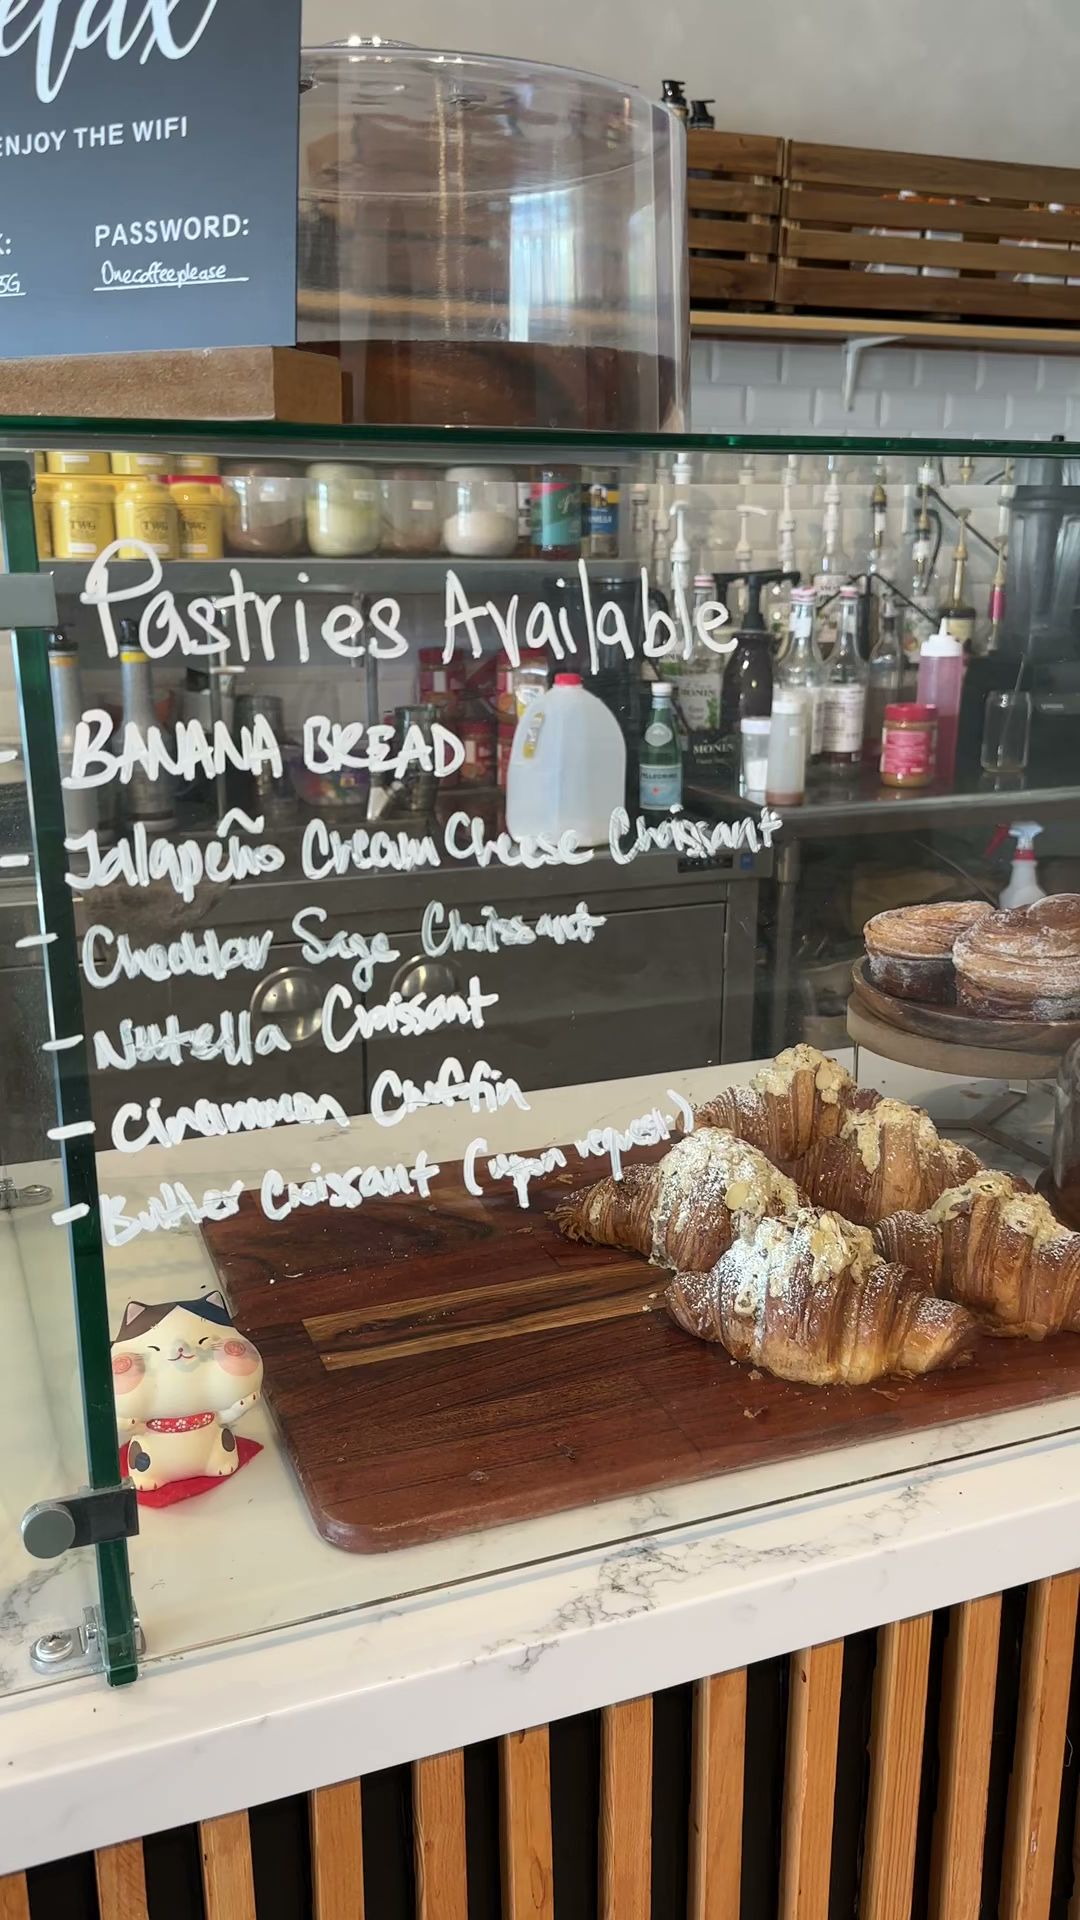 elax
ENJOY THE WIFI
K:
5G
PASSWORD:
Onecoffeeplease
TWG
TWG
TWG
Pastries Available
- BANANA BREAD
- Jalapeño Cream Cheese Croissant
- Cheddar Sage Croissant
- Nutella Croissant
- Cinammon Cruffin
- Butter Croissant (upon request)
MONIN
MONIN
S.PELLEGRINO